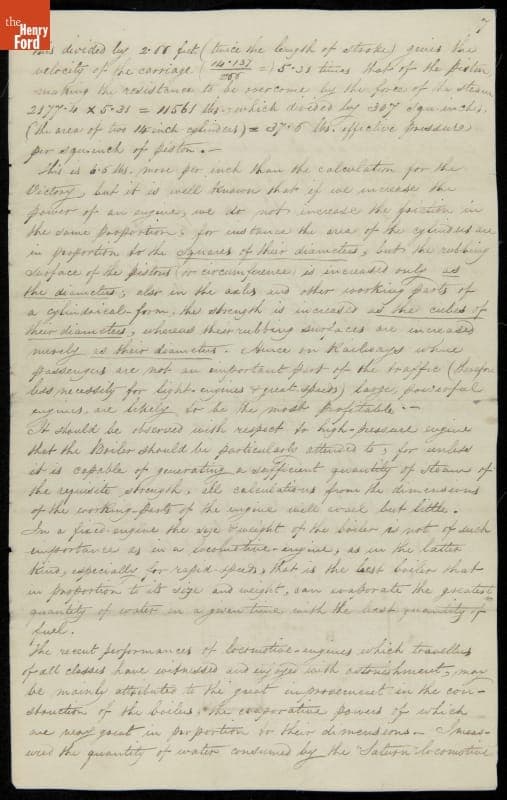 the
Henry
Ford
7
this divided by 2·66 feet (twice the length of stroke) gives the
velocity of the carriage (14·137/266 =) 5·31 times that of the piston
making the resistance to be overcome by the force of the steam
2177·4 × 5·31 = 11561 lbs. which divided by 307 squ. inches
(the area of two 14 inch cylinders) = 37·6 lbs. effective pressure
per squ. inch of piston. —
This is 6·5 lbs. more per inch than the calculation for the
Victory, but it is well known that if we increase the
power of an engine, we do not increase the friction in
the same proportion; for instance the area of the cylinders are
in proportion to the squares of their diameters, but the rubbing
surface of the pistons (or circumference) is increased only as
the diameters; also in the axles and other working parts of
a cylindrical form, the strength is increased as the cubes of
their diameters, whereas their rubbing surfaces are increased
merely as their diameters. Hence on Railways where
passengers are not an important part of the traffic (therefore
less necessity for light engines & great speeds) large, powerful
engines, are likely to be the most profitable. —
It should be observed with respect to high-pressure engines
that the Boiler should be particularly attended to; for unless
it is capable of generating a sufficient quantity of steam of
the requisite strength, all calculations from the dimensions
of the working-parts of the engine will avail but little.
In a fixed engine the size & weight of the boiler is not of such
importance as in a locomotive-engine, as in the latter
kind, especially for rapid-speeds, that is the best boiler that
in proportion to its size and weight, can evaporate the greatest
quantity of water in a given time with the least quantity of
fuel.
The recent performances of locomotive-engines which travellers
of all classes have witnessed and enjoyed with astonishment, may
be mainly attributed to the great improvement in the con-
struction of the boilers, the evaporative powers of which
are very great in proportion to their dimensions. — I meas-
ured the quantity of water consumed by the "Saturn" locomotive